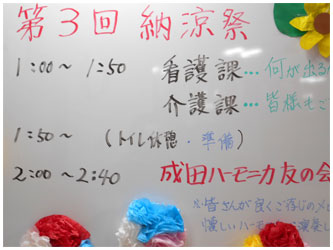 第3回 納涼祭
1:00～1:50 看護課…何が出る
介護課…皆様もご
1:50～ (トイレ休憩・準備)
2:00～2:40 成田ハーモニカ友の会
※皆さんが良くご存じのメ
懐しいハーモニカ